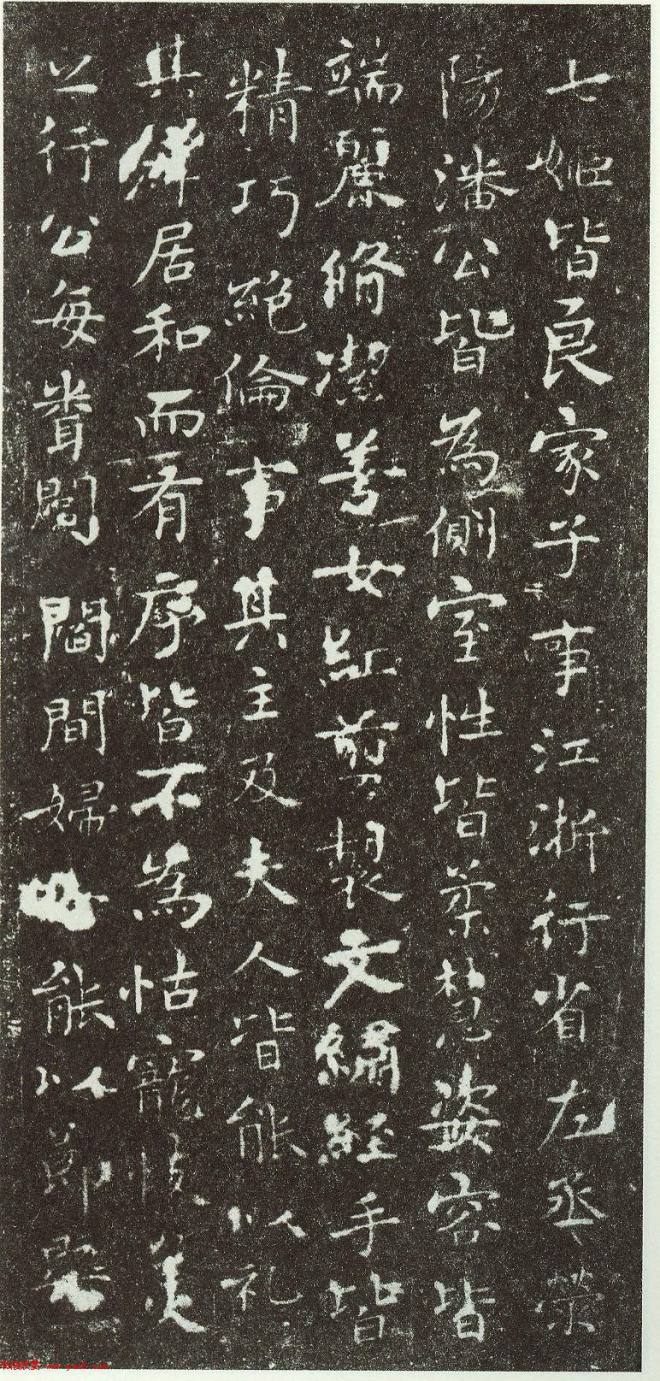 七姬皆良家子事江浙行省左丞榮
陽潘公皆為側室性皆柔慧姿容皆
端麗脩潔善女紅剪製文繡經手皆
精巧絕倫事其主及夫人皆能以礼
其羣居和而有序皆不為怙寵忮美
之行公每聞閻間婦能以節